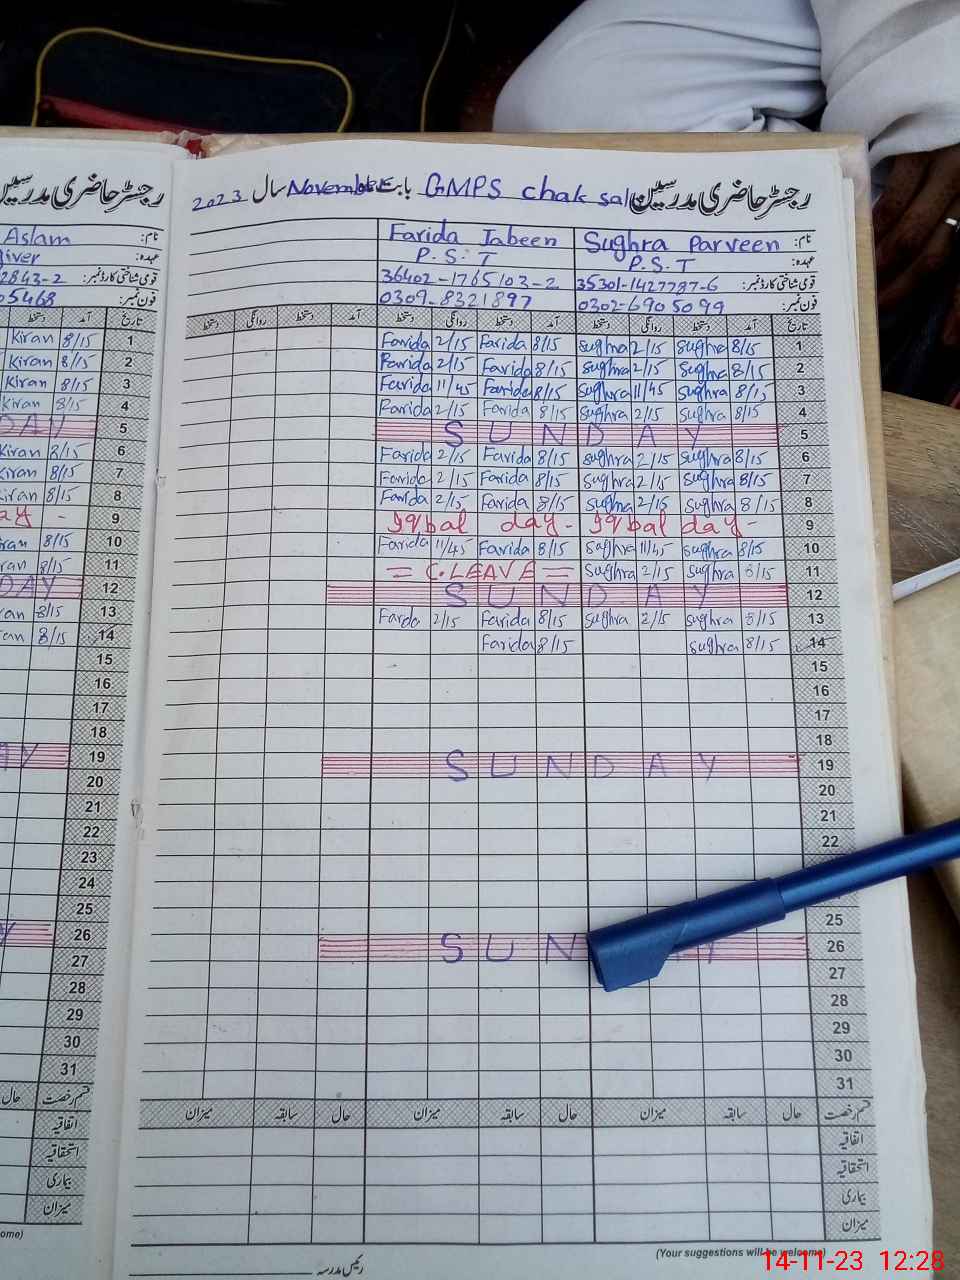 رجسٹر حاضری مدرسین GMPS chak sal بابت November سال 2023
نام: Sughra Parveen Farida Jabeen
عہدہ: P.S.T P.S.T
قومی شناختی کارڈ نمبر: 35301-1427787-6 36402-1765103-2
فون نمبر: 0302-6905099 0309-8321897
تاریخ آمد دستخط روانگی دستخط آمد دستخط روانگی دستخط آمد دستخط روانگی دستخط
1 8/15 Sughra 2/15 Sughra 8/15 Farida 2/15 Farida
2 8/15 Sughra 2/15 Sughra 8/15 Farida 2/15 Farida
3 8/15 Sughra 11/45 Sughra 8/15 Farida 11/45 Farida
4 8/15 Sughra 2/15 Sughra 8/15 Farida 2/15 Farida
5 SUNDAY
6 8/15 Sughra 2/15 Sughra 8/15 Farida 2/15 Farida
7 8/15 Sughra 2/15 Sughra 8/15 Farida 2/15 Farida
8 8/15 Sughra 2/15 Sughra 8/15 Farida 2/15 Farida
9 Iqbal day - Iqbal day -
10 8/15 Sughra 11/45 Sughra 8/15 Farida 11/45 Farida
11 8/15 Sughra 2/15 Sughra = C.LEAVE =
12 SUNDAY
13 8/15 Sughra 2/15 Sughra 8/15 Farida 2/15 Farda
14 8/15 Sughra 8/15 Farida
15
16
17
18
19 SUNDAY
20
21
22
25
26 SUN AY
27
28
29
30
31
قسم رخصت حال سابقہ میزان حال سابقہ میزان حال سابقہ میزان
اتفاقیہ
استحقاقیہ
بیماری
میزان
(Your suggestions will be welcome)
رئیس مدرسہ
رجسٹر حاضری مدرسین
نام: Aslam
عہدہ: giver
قومی شناختی کارڈ نمبر: 2843-2
فون نمبر: 05468
تاریخ آمد دستخط
1 8/15 Kiran
2 8/15 Kiran
3 8/15 Kiran
4 8/15 Kiran
5 DAY
6 8/15 Kiran
7 8/15 Kiran
8 8/15 Kiran
9 ay -
10 8/15 ran
11 8/15 ran
12 DAY
13 8/15 an
14 8/15 an
15
16
17
18
19 AY
20
21
22
23
24
25
26 Y
27
28
29
30
31
قسم رخصت حال
اتفاقیہ
استحقاقیہ
بیماری
میزان
ome)
14-11-23 12:28